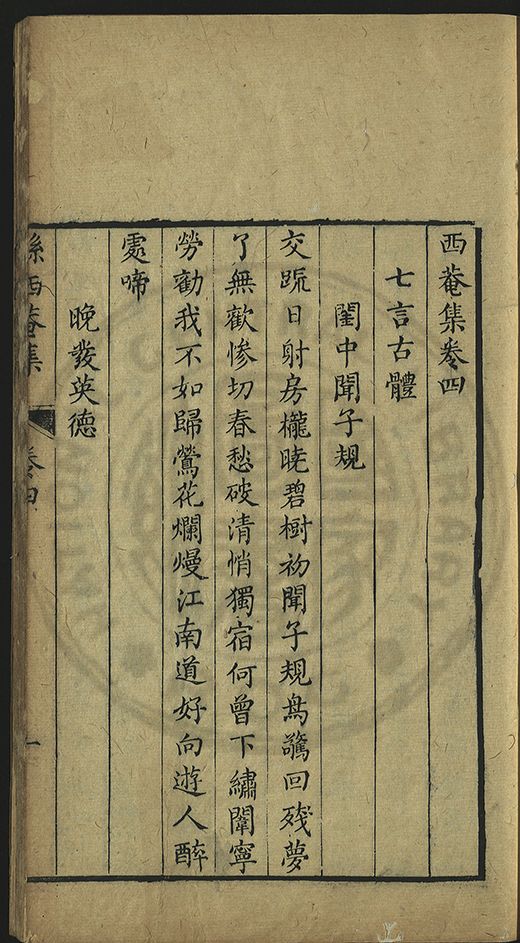 西菴集卷四
七言古體
閨中聞子規
交疏日射房櫳曉碧樹初聞子規鳥驚回殘夢
了無歡慘切春愁破清悄獨宿何曾下繡闈寧
勞勸我不如歸鶯花爛熳江南道好向遊人醉
處啼
晚發英德
西菴集 卷四 一